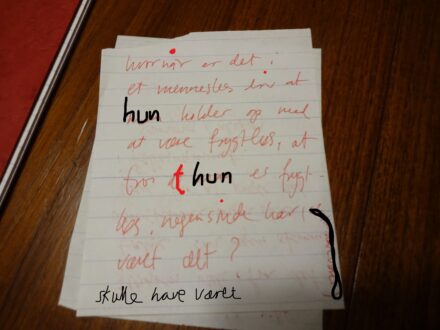 hvornår er det i
et menneskes liv at
hun holder op med
at være frygtløs, at
tro at hun er frygt-
løs, nogensinde har
været det?
skulle have været